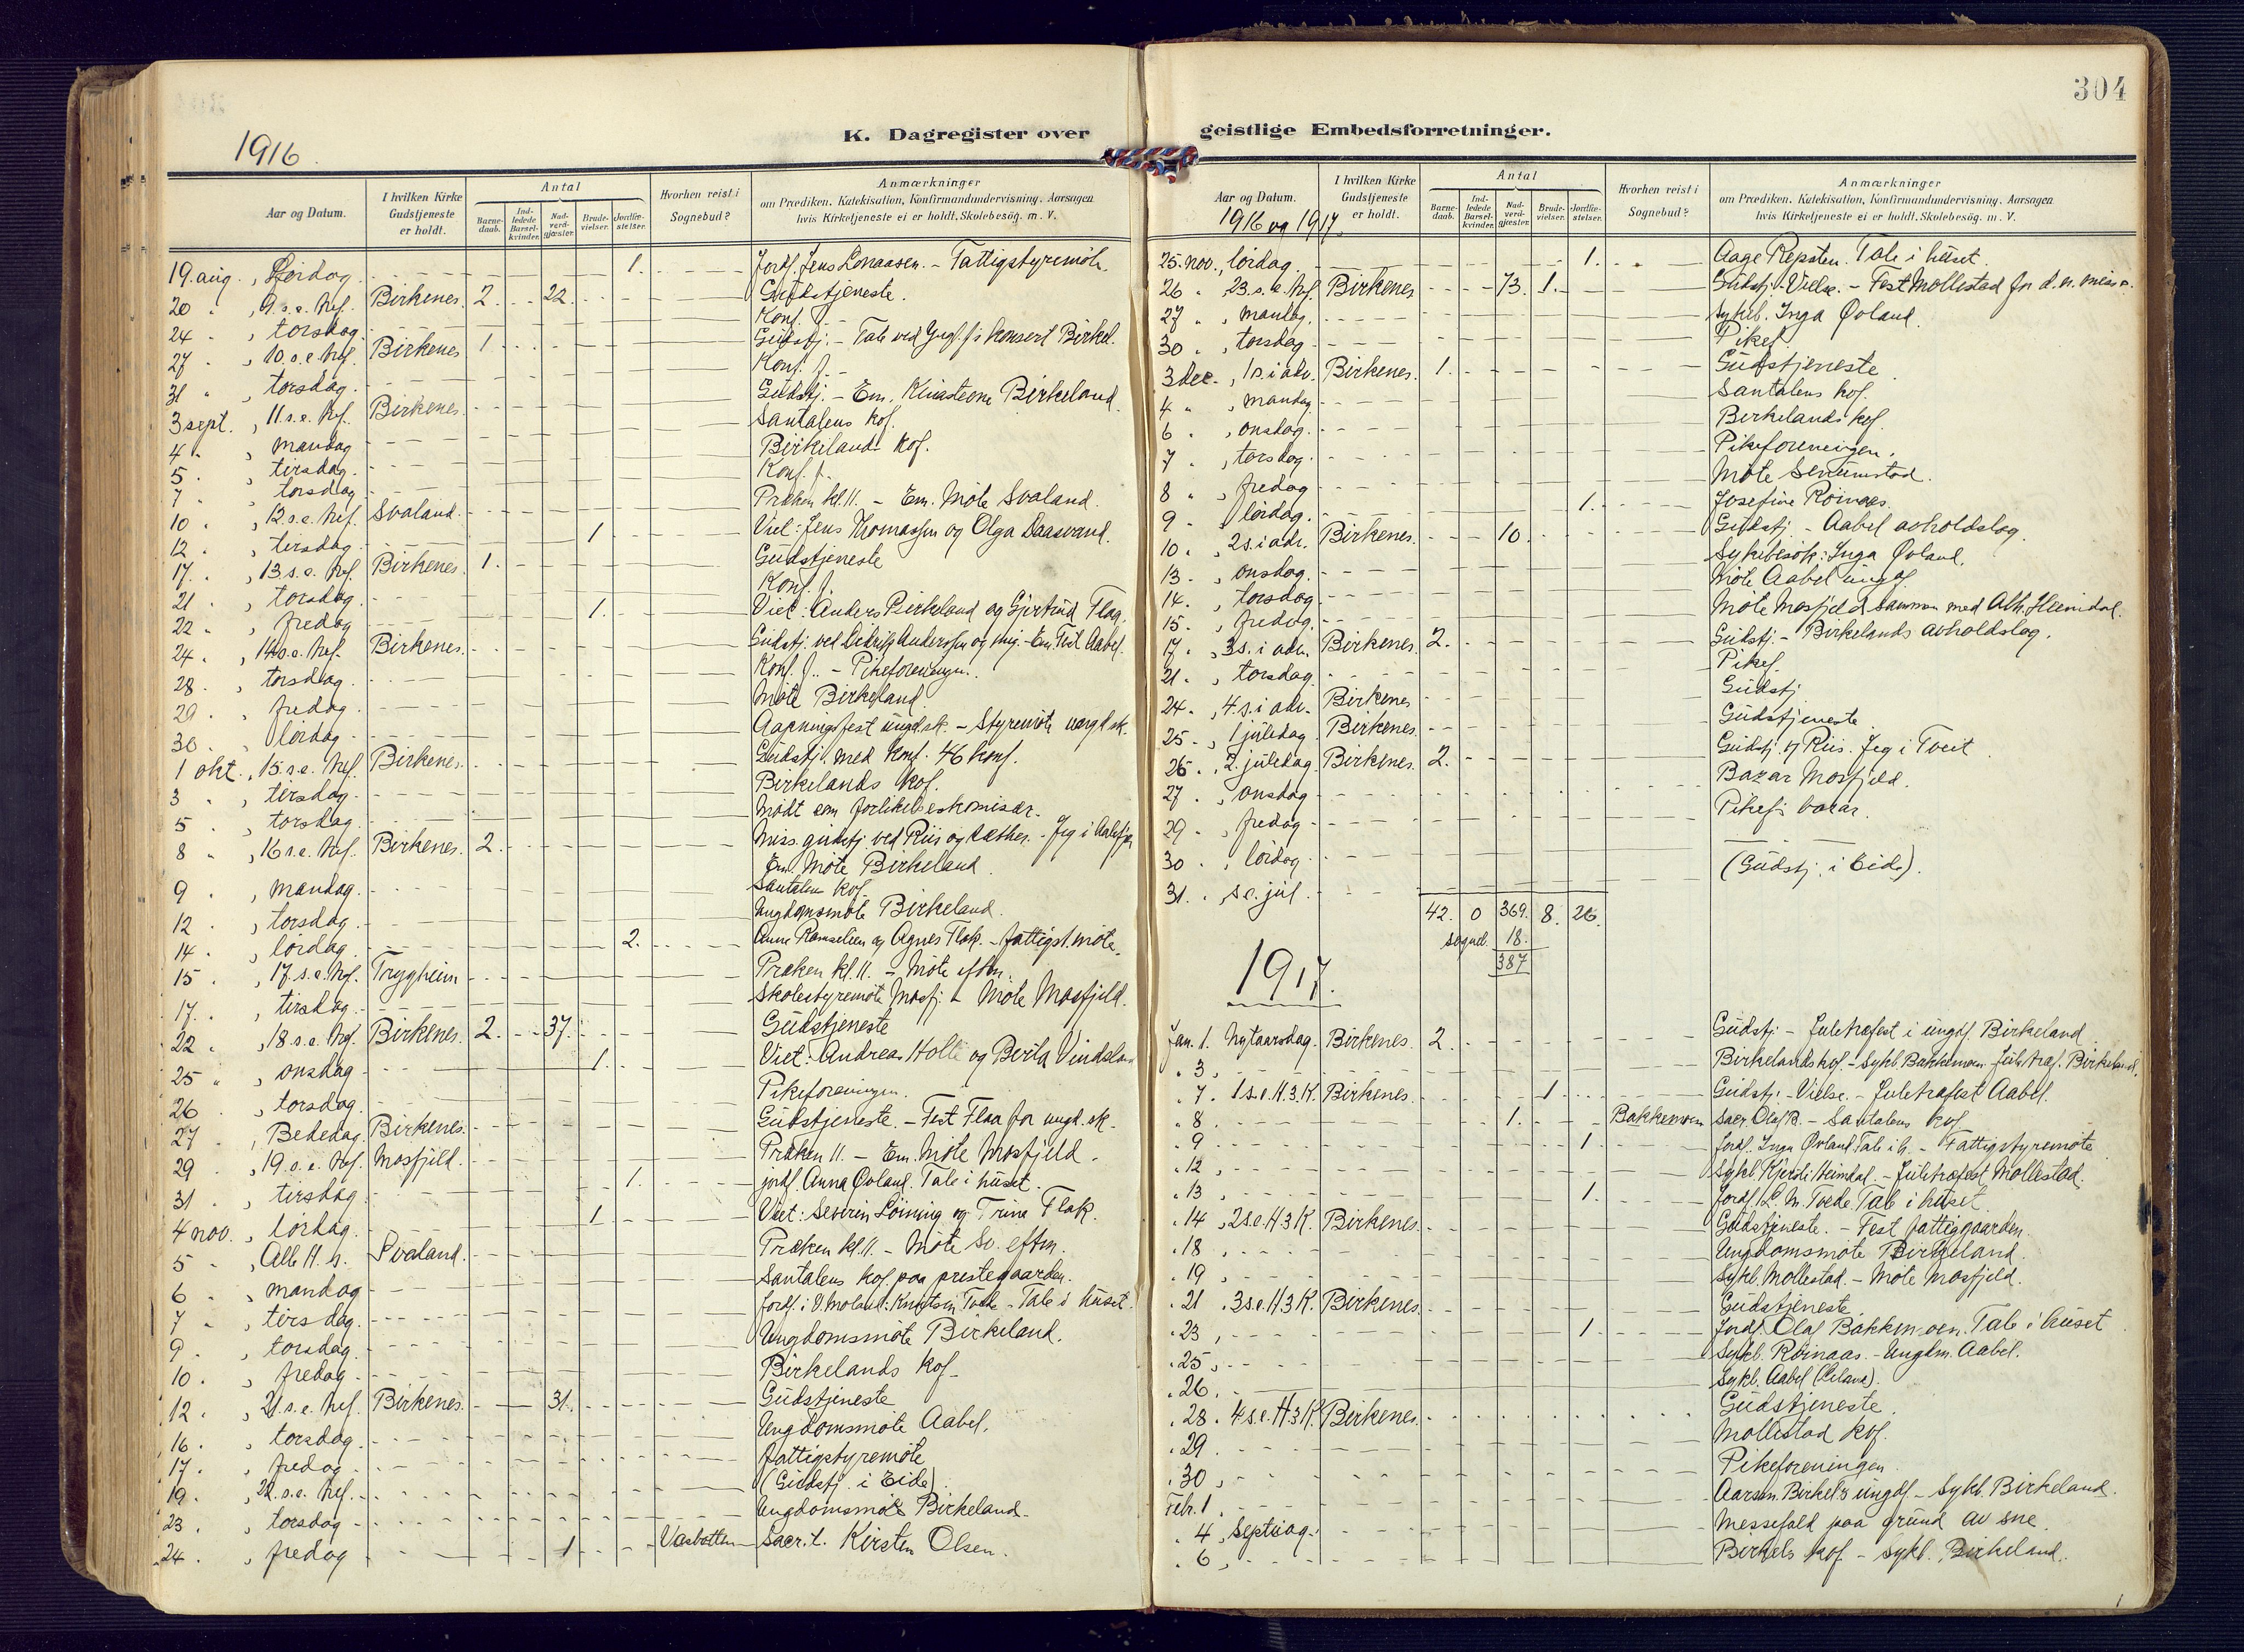 304
K. Dagregister over geistlige Embedsforretninger.
1916
Aar og Datum. I hvilken Kirke Gudstjeneste er holdt. Antal Barnedaab. Indledede Barselkvinder. Nadverdgjæster. Brudevielser. Jordfæstelser. Hvorhen reist i Sognebud? Anmærkninger om Prædiken, Katekisation, Konfirmandundervisning, Aarsagen hvis Kirketjeneste ei er holdt, Skolebesøg. m. V.
19. aug., Lördag 1. Jordf. Jens - Fattigstyremöte.
20 " , 9.s.e. tref. Birkenes. 2. 22. Gudstjeneste.
24 " , torsdag Konf. f.
27 " , 10.s.e. tref. Birkenes 1. Gudstj. - Tale ved konsert Birkel.
31 " , torsdag. Konf. f.
3 sept. , 11.s.e. tref. Birkenes. Gudstj. - Em. Birkeland.
4 " , mandag Santalens kof.
5 . , tirsdag. Birkelands kof.
7 " , torsdag Konf. f.
10 . , 12.s.e. tref. Svaland. Præken kl. 11. - Em. Möte Svaland.
12 . , tirsdag 1. Viet: Jens Thomassen og Olga Daasvand.
17. . , 13.s.e. tref. Birkenes. 1. Gudstjeneste
21 . , torsdag. Konf. f.
22 . , fredag 1. Viet: Anders Birkeland og Gjertrud Flaa.
24 . , 14.s.e. tref. Birkenes. Gudstj. ved Anderssen og mig. - Em. Fest Aabel.
28. , torsdag. Konf. f. - Pikeforeningen.
29 . , fredag. Möte Birkeland.
30 . , lördag. Aapningsfest ungd.sk. - Styremöte ungd.sk.
1 okt. , 15.s.e. tref. Birkenes. Gudstj. med konf. 46 konf.
3 " , tirsdag. Birkelands kof.
5 . , torsdag. Mödt som forlikelseskomisær.
8 " , 16 s.e. tref. Birkenes. 2. Miss. gudstj. ved Riis og - Jeg i
Em. Möte Birkeland.
9 . , mandag. Santalens kof.
12 . , torsdag Ungdomsmöte Birkeland.
14 . , lördag. 2. Anne og Agnes Flak. - fattigst. möte.
15 . , 17.s.e. tref. Trygheim Præken kl. 11. - Möte eftm.
17. . , tirsdag. Skolestyremöte Mosfj. - Möte Mosfjeld.
22 . , 18 s.e. tref. Birkenes. 2. 37. Gudstjeneste
25 " , onsdag 1. Viet: Andreas Holte og Berta
26 . , torsdag. Pikeforeningen.
27 . , Bededag. Birkenes. Gudstjeneste. - Fest Flaa for ungd.sk.
29 . , 19.s.e. tref. Mosfjeld. Præken 11. - Em. Möte Mosfjeld.
31 . , tirsdag 1. jordf. Anna Övland. Tale i huset.
4 nov. , lördag. 1. Viet: Severin Löining og Trine Flak.
5 . , Alle H. h. Svaland. Præken kl. 11. - Möte Sv. eftm.
6 . , mandag Santalens kof. paa prestegaarden.
7 " , tirsdag. Jordf. i V. Moland: Knutsen Tveide - Tale i huset.
9 . , torsdag. Ungdomsmöte Birkeland.
10 . , fredag. Birkelands kof.
12 . , 21.s.e. tref. Birkenes. 31. Gudstjeneste
16. , torsdag. Ungdomsmöte Aabel.
17. . , fredag fattigstyremöte
19. , 22.s.e. tref. (Gudstj. i Eide)
23 . , torsdag Ungdomsmöte Birkeland.
24 . , fredag 1 Vasbotten Sacr. t. Kirsten Olsen.
Aar og Datum. I hvilken Kirke Gudstjeneste er holdt. Antal Barnedaab. Indledede Barselkvinder. Nadverdgjæster. Brudevielser. Jordfæstelser. Hvorhen reist i Sognebud? Anmærkninger om Prædiken, Katekisation, Konfirmandundervisning, Aarsagen hvis Kirketjeneste ei er holdt, Skolebesøg. m. V.
1916 og 1917.
25. nov., lördag. 1. Aage Repsten. Tale i huset.
26 " , 23.s.e. tref. Birkenes 73. 1. Gudstj. - Vielse. - Fest Mollestad for d. n. misj.
27 " , mandag. Sykeb. Inga Övland.
30 . , torsdag Pikef.
3 dec. , 1 s. i adv. Birkenes. 1. Gudstjeneste
4 " , mandag Santalens kof.
6 . , onsdag. Birkelands kof.
7 " , torsdag. Pikeforeningen.
8 " , fredag Möte Senumstad.
9 . , lördag. 1. Josefine Röinaas.
10 . , 2 s. i adv. Birkenes. 10. Gudstj. - Aabel avholdslag.
13. . , onsdag. Sykebesök: Inga Övland.
14. , torsdag Möte Aabel ungdf.
15. . , fredag. Möte Mosfjeld sammen med Heimdal.
17. . , 3 s. i adv. Birkenes. 2. Gudstj. - Birkelands avholdslag.
21. , torsdag. Pikef.
24. , 4. s. i adv. Birkenes Gudstj.
25. . , 1 juledag. Birkenes. Gudstjeneste
26. . , 2. juledag Birkenes. 2. Gudstj. v/ Riis. Jeg i Tveit
27. . , onsdag Bazar Mosfjeld.
29 . , fredag Pikef.s bazar.
30 . , lördag
31. . , s.e. jul. (Gudstj. i Eide).
42. 0 369. 8. 26.
sogneb. 18.
387
1917.
Jan. 1. Nytaarsdag. Birkenes. 2. Gudstj. - Juletræfest i ungdf. Birkeland
" 3 , Birkelands kof. - Sykb. Bakkemoen. Juletræf. Birkeland.
" 7. 1 s.e. H. 3. K. Birkenes. 1. Gudstj. - Vielse. - Juletræfest Aabel.
" 8 1. Bakkemoen Sacr. Olaf B. - Santalens kof
" 9 1 Jordf. Inga Övland. Tale i h. - Fattigstyremöte
" 12 , Sykb. Kjersti Heimdal. - Juletræfest Mollestad.
" 13 1. Jordf. L. M. Tvede. Tale i huset.
" 14 , 2 s.e. H 3 K. Birkenes. Gudstjeneste. - Fest fattiggaarden.
" 18 , Ungdomsmöte Birkeland.
" 19 , Sykb. Mollestad. - Möte Mosfjeld.
" 21 . 3 s.e. H. 3 K. Birkenes. Gudstjeneste.
" 23 , 1 Jordf. Olaf Bakkemoen. Tale i huset
" 25 , Sykb. Röinaas. - Ungdm. Aabel.
" 26 . Sykb. Aabel
" 28 . 4 s.e. H. 3 K. Birkenes. Gudstjeneste.
" 29 . Mollestad kof.
" 30 , Pikeforeningen
Febr. 1 . Aarsm. Birkel.s ungdf. - Sykb. Birkeland.
" 4 , Septuag. Messefald paa grund av sne.
" 6 , Birkel.s kof. - sykb. Birkeland.